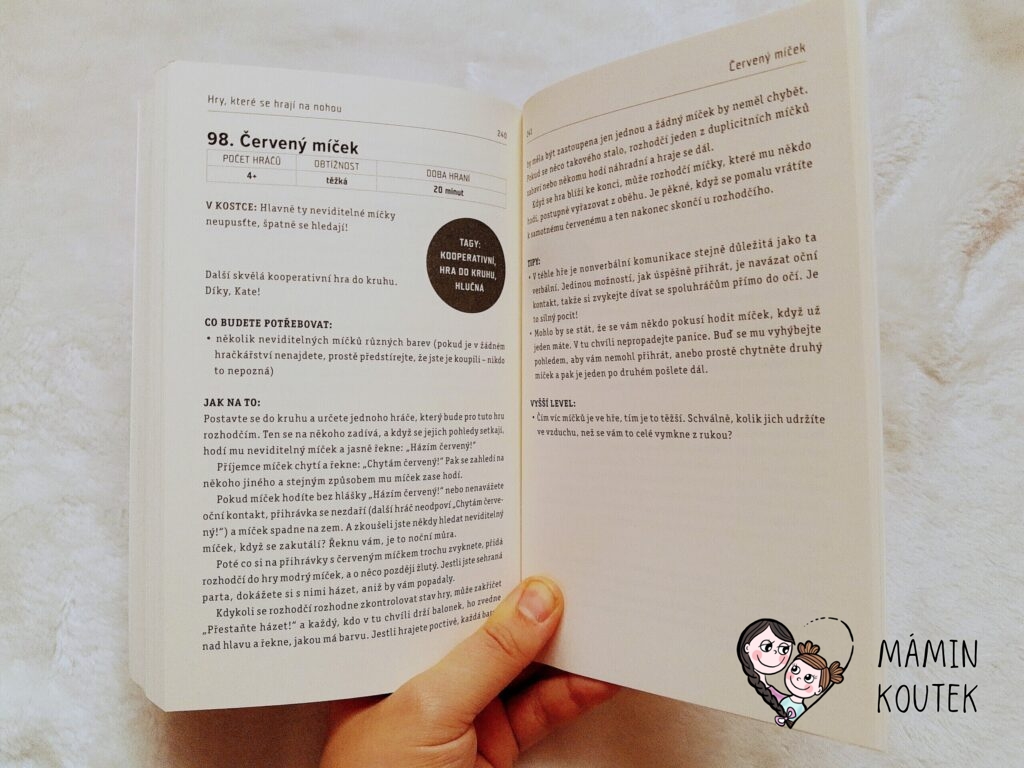 Hry, které se hrají na nohou
240
98. Červený míček
POČET HRÁČŮ OBTÍŽNOST DOBA HRANÍ
4+ těžká 20 minut
V KOSTCE: Hlavně ty neviditelné míčky
neupusťte, špatně se hledají!
TAGY:
KOOPERATIVNÍ,
HRA DO KRUHU,
HLUČNÁ
Další skvělá kooperativní hra do kruhu.
Díky, Kate!
CO BUDETE POTŘEBOVAT:
• několik neviditelných míčků různých barev (pokud je v žádném
hračkářství nenajdete, prostě předstírejte, že jste je koupili – nikdo
to nepozná)
JAK NA TO:
Postavte se do kruhu a určete jednoho hráče, který bude pro tuto hru
rozhodčím. Ten se na někoho zadívá, a když se jejich pohledy setkají,
hodí mu neviditelný míček a jasně řekne: „Házím červený!“
Příjemce míček chytí a řekne: „Chytám červený!“ Pak se zahledí na
někoho jiného a stejným způsobem mu míček zase hodí.
Pokud míček hodíte bez hlášky „Házím červený!“ nebo nenavážete
oční kontakt, přihrávka se nezdaří (další hráč neodpoví „Chytám červe-
ný!“) a míček spadne na zem. A zkoušeli jste někdy hledat neviditelný
míček, když se zakutálí? Řeknu vám, je to noční můra.
Poté co si na přihrávky s červeným míčkem trochu zvyknete, přidá
rozhodčí do hry modrý míček, a o něco později žlutý. Jestli jste sehraná
parta, dokážete si s nimi házet, aniž by vám popadaly.
Kdykoli se rozhodčí rozhodne zkontrolovat stav hry, může zakřičet
„Přestaňte házet!“ a každý, kdo v tu chvíli drží balonek, ho zvedne
nad hlavu a řekne, jakou má barvu. Jestli hrajete poctivě, každá
Červený míček
241
by měla být zastoupena jen jednou a žádný míček by neměl chybět.
Pokud se něco takového stalo, rozhodčí jeden z duplicitních míčků
zabaví nebo někomu hodí náhradní a hraje se dál.
Když se hra blíží ke konci, může rozhodčí míčky, které mu někdo
hodí, postupně vyřazovat z oběhu. Je pěkné, když se pomalu vrátíte
k samotnému červenému a ten nakonec skončí u rozhodčího.
TIPY:
• V téhle hře je nonverbální komunikace stejně důležitá jako ta
verbální. Jedinou možností, jak úspěšně přihrát, je navázat oční
kontakt, takže si zvykejte dívat se spoluhráčům přímo do očí. Je
to silný pocit!
• Mohlo by se stát, že se vám někdo pokusí hodit míček, když už
jeden máte. V tu chvíli nepropadejte panice. Buď se mu vyhýbejte
pohledem, aby vám nemohl přihrát, anebo prostě chytněte druhý
míček a pak je jeden po druhém pošlete dál.
VYŠŠÍ LEVEL:
• Čím víc míčků je ve hře, tím je to těžší. Schválně, kolik jich udržíte
ve vzduchu, než se vám to celé vymkne z rukou?
MÁMIN
KOUTEK